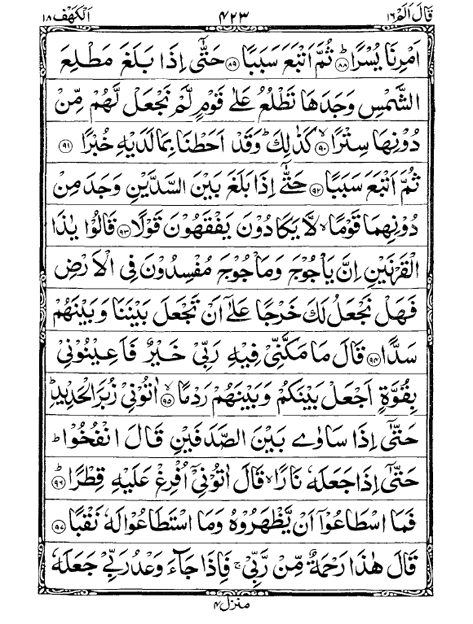 قَالَ اَلَمْ ١٦ ٤٢٣ اَلْكَهْف ١٨
اَمْرِنَا يُسْرًا ؕ‏ ﴿٨٨﴾ ثُمَّ اَتْبَعَ سَبَبًا ﴿٨٩﴾ حَتّٰٓى اِذَا بَلَغَ مَطْلِعَ
الشَّمْسِ وَجَدَهَا تَطْلُعُ عَلٰى قَوْمٍ لَّمْ نَجْعَلْ لَّهُمْ مِّنْ
دُوْنِهَا سِتْرًا ۙ‏ ﴿٩٠﴾ كَذٰلِكَ ؕ وَقَدْ اَحَطْنَا بِمَا لَدَيْهِ خُبْرًا ﴿٩١﴾
ثُمَّ اَتْبَعَ سَبَبًا ﴿٩٢﴾ حَتّٰٓى اِذَا بَلَغَ بَيْنَ السَّدَّيْنِ وَجَدَ مِنْ
دُوْنِهِمَا قَوْمًا ۙ لَّا يَكَادُوْنَ يَفْقَهُوْنَ قَوْلًا ﴿٩٣﴾ قَالُوْا يٰذَا
الْقَرْنَيْنِ اِنَّ يَاْجُوْجَ وَمَاْجُوْجَ مُفْسِدُوْنَ فِى الْاَرْضِ
فَهَلْ نَجْعَلُ لَكَ خَرْجًا عَلٰٓى اَنْ تَجْعَلَ بَيْنَنَا وَبَيْنَهُمْ
سَدًّا ﴿٩٤﴾ قَالَ مَا مَكَّنِّىْ فِيْهِ رَبِّىْ خَيْرٌ فَاَعِيْنُوْنِىْ
بِقُوَّةٍ اَجْعَلْ بَيْنَكُمْ وَبَيْنَهُمْ رَدْمًا ۙ‏ ﴿٩٥﴾ اٰتُوْنِىْ زُبَرَ الْحَدِيْدِ ؕ
حَتّٰٓى اِذَا سَاوٰى بَيْنَ الصَّدَفَيْنِ قَالَ انْفُخُوْا ؕ
حَتّٰٓى اِذَا جَعَلَهٗ نَارًا ۙ قَالَ اٰتُوْنِىْۤ اُفْرِغْ عَلَيْهِ قِطْرًا ؕ‏ ﴿٩٦﴾
فَمَا اسْطَاعُوْۤا اَنْ يَّظْهَرُوْهُ وَمَا اسْتَطَاعُوْا لَهٗ نَقْبًا ﴿٩٧﴾
قَالَ هٰذَا رَحْمَةٌ مِّنْ رَّبِّىْ ۚ فَاِذَا جَآءَ وَعْدُ رَبِّىْ جَعَلَهٗ
منزل ٤